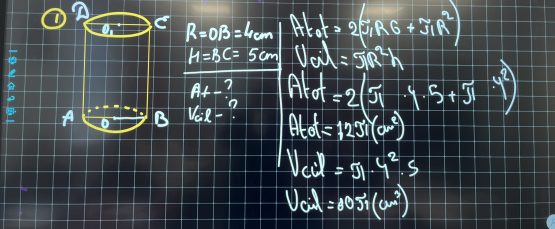 1
D
C
O₁
A
O
B
R=OB=4cm
H=BC=5cm
At-?
Vcil-?
Atot=2(πRG+πR²)
Vcil=πR²h
Atot=2(π·4·5+π·4²)
Atot=72π(cm²)
Vcil=π·4²·5
Vcil=80π(cm³)